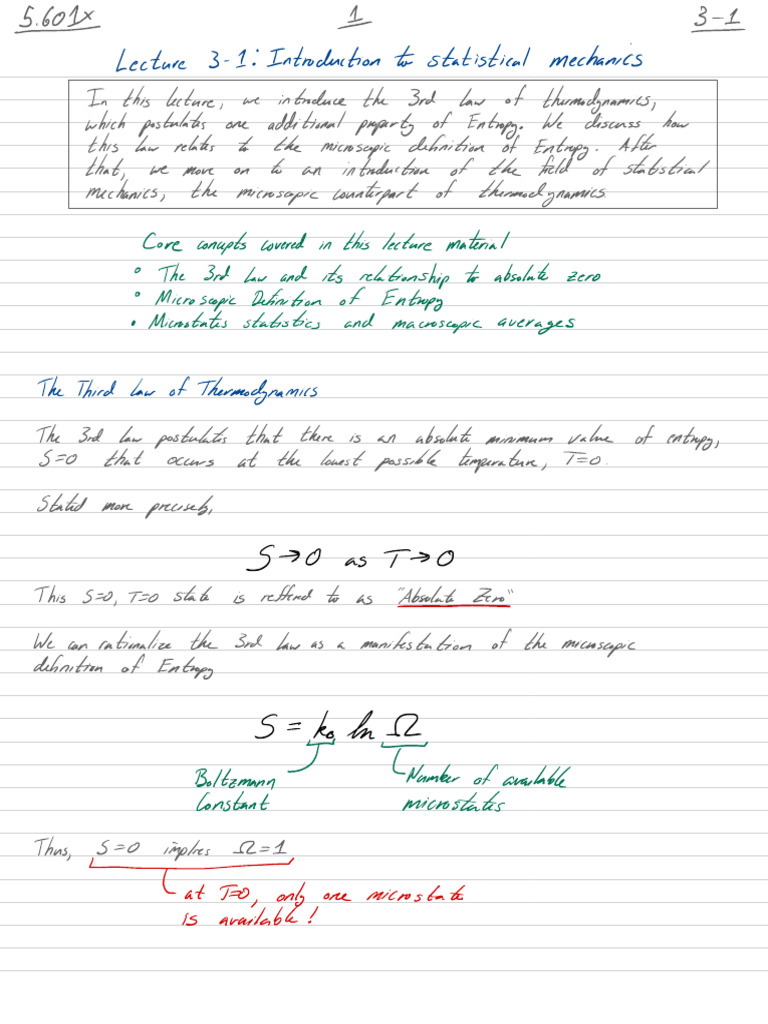 5.601x 1 3-1
Lecture 3-1: Introduction to statistical mechanics
In this lecture, we introduce the 3rd law of thermodynamics,
which postulates one additional property of Entropy. We discuss how
this law relates to the microscopic definition of Entropy. After
that, we move on to an introduction of the field of statistical
mechanics, the microscopic counterpart of thermodynamics.
Core concepts covered in this lecture material
• The 3rd Law and its relationship to absolute zero
• Microscopic Definition of Entropy
• Microstates statistics and macroscopic averages
The Third Law of Thermodynamics
The 3rd law postulates that there is an absolute minimum value of entropy,
S=0 that occurs at the lowest possible temperature, T=0.
Stated more precisely,
S→0 as T→0
This S=0, T=0 state is reffered to as "Absolute Zero"
We can rationalize the 3rd law as a manifestation of the microscopic
definition of Entropy
S = k ln Ω
Boltzmann Number of available
Constant microstates
Thus, S=0 implies Ω=1
at T=0, only one microstate
is available!